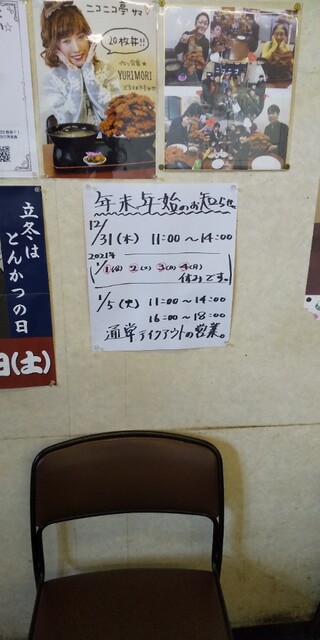 ニコニコ亭 サマ
20枚丼!!
YURIMORI
立冬は
とんかつの日
日(土)
年末年始のお知らせ
12/31(木) 11:00〜14:00
2021年
1/1(金) 2(土) 3(日) 4(月)
休みです。
1/5(火) 11:00〜14:00
16:00〜18:00
通常テイクアウトの営業。